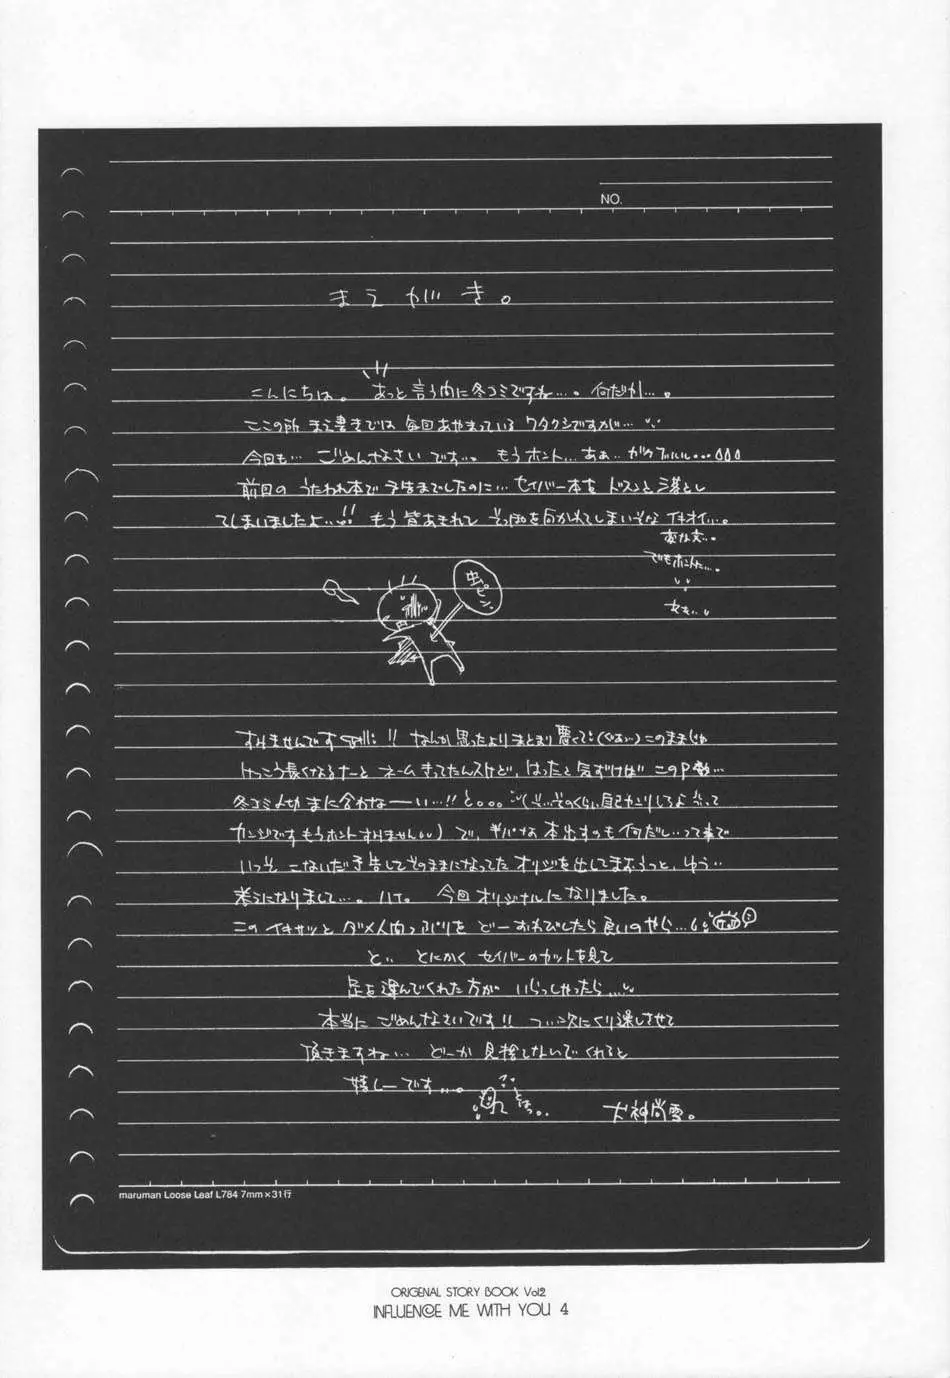 NO.
まえがき。
こんにちは。あっと言う内に冬コミですね…。何だか…。
ここの所 まえ書きでは 毎回あやまっている ワタクシですが…
今回も… ごめんなさい です… もうホント… あぁ… ガクブルルル…
前回の うたわれ本で 予告までしたのに… セイバー本を ドスンと落とし
てしまいましたよ…!! もう皆あきれて そっぽを向かれてしまいそうな イキオイ…。
変な文…。
でもホントだ…。
虫ピン
すみませんです !! なんか思ったよりまとまり悪くて (ぐあ…) このままじゃ
けっこう長くなるなーと ネームきってたんスけど、はったと気ずけば このP数…
冬コミ〆切 まに合わなーい…!! と。。。 (そ…そのくらい自己カンリしろよ って
カンジです もうホント すみません) で、半パな 本出すのも何だし…って事で
いっそ こないだ予告してそのままになってた オリジを出してまおうっと、ゆう
考えになりまして…。ハイ。 今回オリジナルになりました。
この イキサツと ダメ人間っぷりを どーおわびしたら良いのやら…
と、とにかく セイバーのカットを見て
足を運んでくれた方が いらっしゃったら…
本当に ごめんなさいです!! つ、次にくり越しさせて
頂きますね… どーか 見捨てないでくれると
嬉しーです…。
犬神尚雪。
maruman Loose Leaf L784 7mm×31行
ORIGENAL STORY BOOK Vol2
INFLUENCE ME WITH YOU 4